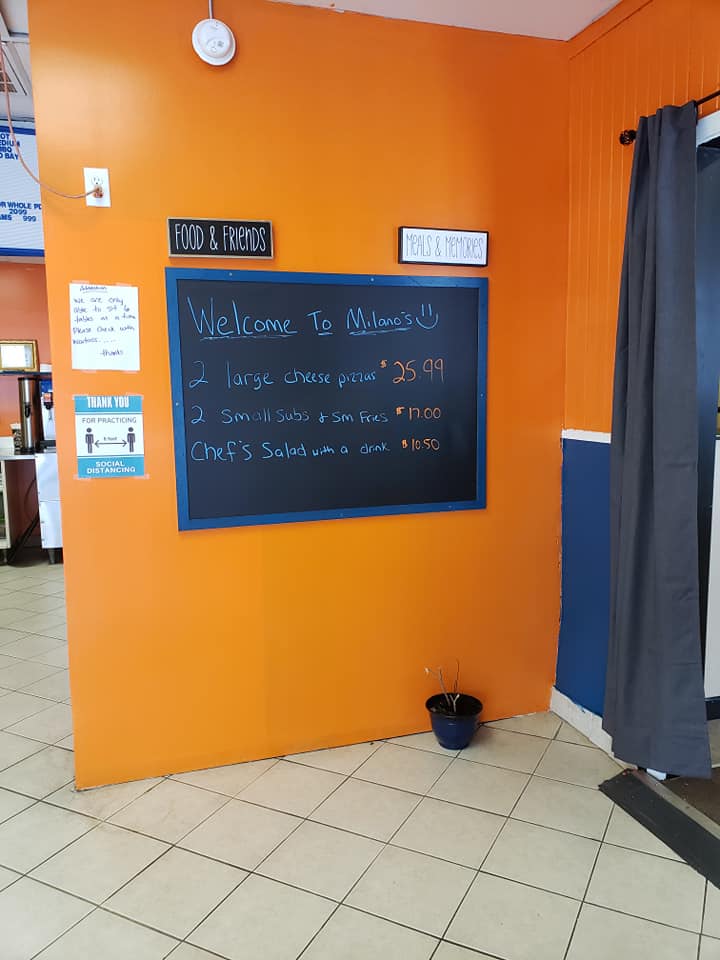 FOOD & FRIENDS
MEALS & MEMORIES
Welcome To Milano's
2 large cheese pizzas $25.99
2 Small Subs & Sm Fries $17.00
Chef's Salad with a drink $10.50
Attention
We are only
able to sit 6
tables at a time
Please check with
waitress.....
thanks
THANK YOU
FOR PRACTICING
6 feet
SOCIAL
DISTANCING
OT
EDIUM
MBO
D BAY
OR WHOLE PI
2099
AMS 999